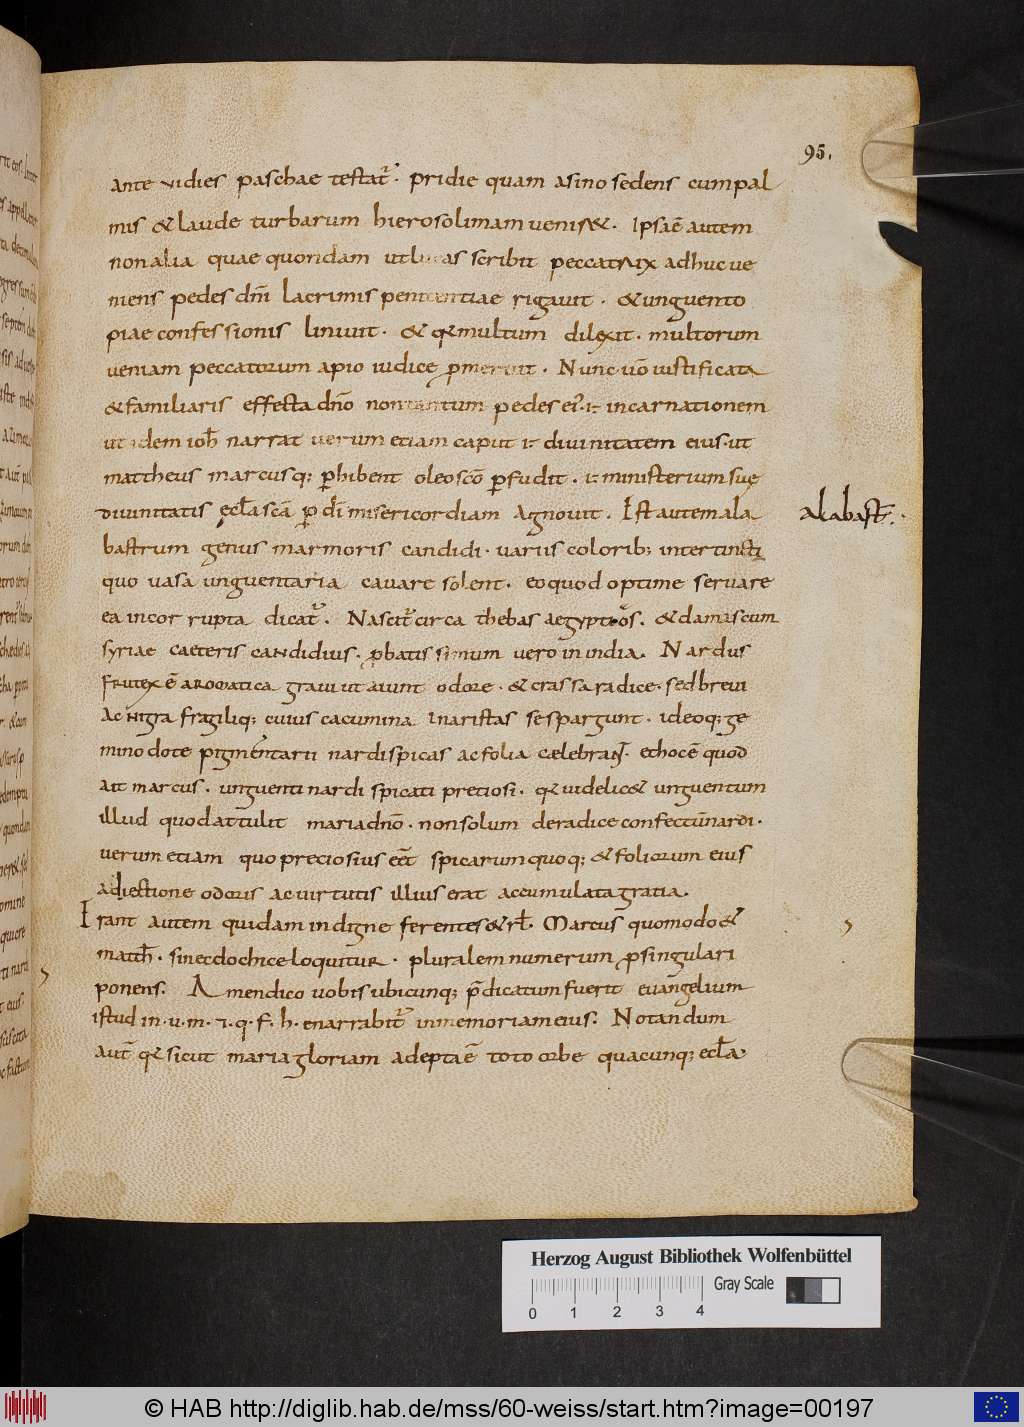 95.
ante vi dies paschae testat̃. pridie quam asino sedens cum pal
mis & laude turbarum hierosolimam venis&. Ipsa ẽ autem
non alia quae quondam ut lucas scribit peccatrix adhuc ve
niens pedes dñi lacrimis penitentiae rigavit. & unguento
piae confessionis linivit. & qr multum dilexit. multorum
veniam peccatorum a pio iudice ꝓmeruit. Nunc ũo iustificata
& familiaris effecta dño non tantum pedes ei᾽. i᷍. incarnationem
ut idem ioħ narrat verum etiam caput i᷍. divinitatem eius. ut
mattheus marcusq; ꝑhibent oleo scõ ꝑfudit. i᷍. ministerium suę
divinitatis ęccła scã ꝑ dĩ misericordiam agnovit. Ist autem ala
alabast̃.
bastrum genus marmoris candidi. variis colorib; intertincti
quo vasa unguentaria cavare solent. eo quod optime servare
ea incorrupta dicat̃. Nascit̃ circa thebas aegyptios. & damascum
syriae caeteris candidius. ꝓbatissimum vero in india. Nardus
frutex ẽ aromatica gravi ut aiunt odore. & crassa radice. sed brevi
ac nigra fragiliq; cuius cacumina in aristas se spargunt. ideoq; ge
mino dote pigmentarii nardi spicas ac folia caelebrant̃. et hoc ẽ quod
ait marcus. unguenti nardi spicati pretiosi. qr videlic& unguentum
illud quod attulit maria dño. non solum de radice confectũ nardi.
verum etiam quo preciosius eẽt spicarum quoq; & foliorum eius
adiectione odoris ac virtutis illius erat accumulata gratia.
Irant autem quidam indigne ferentes & rł. Marcus quomodo &
matth̃. sinecdochice loquitur. pluralem numerum ꝓ singulari
ponens. Amen dico vobis ubicunq; p̃dicatum fuerit evangelium
istud in. u. m. ⁊. q. f. h. enarrabit̃ in memoriam eius. Notandum
aut̃ qr sicut maria gloriam adepta ẽ toto orbe quacunq; eccła
Herzog August Bibliothek Wolfenbüttel
Gray Scale
0 1 2 3 4
© HAB http://diglib.hab.de/mss/60-weiss/start.htm?image=00197